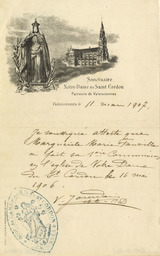 Sanctuaire
Notre-Dame du Saint Cordon
Patronne de Valenciennes
Valenciennes le 11 mai 1907.
Je soussigné atteste que
Marguerite Marie
a fait sa 1ère Communion
en l'église de Notre Dame
du St. Cordon le 16 mai
1906.